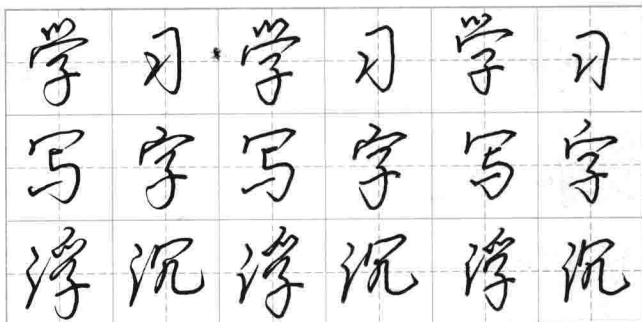 学习学习学习
写字写字写字
浮沉浮沉浮沉